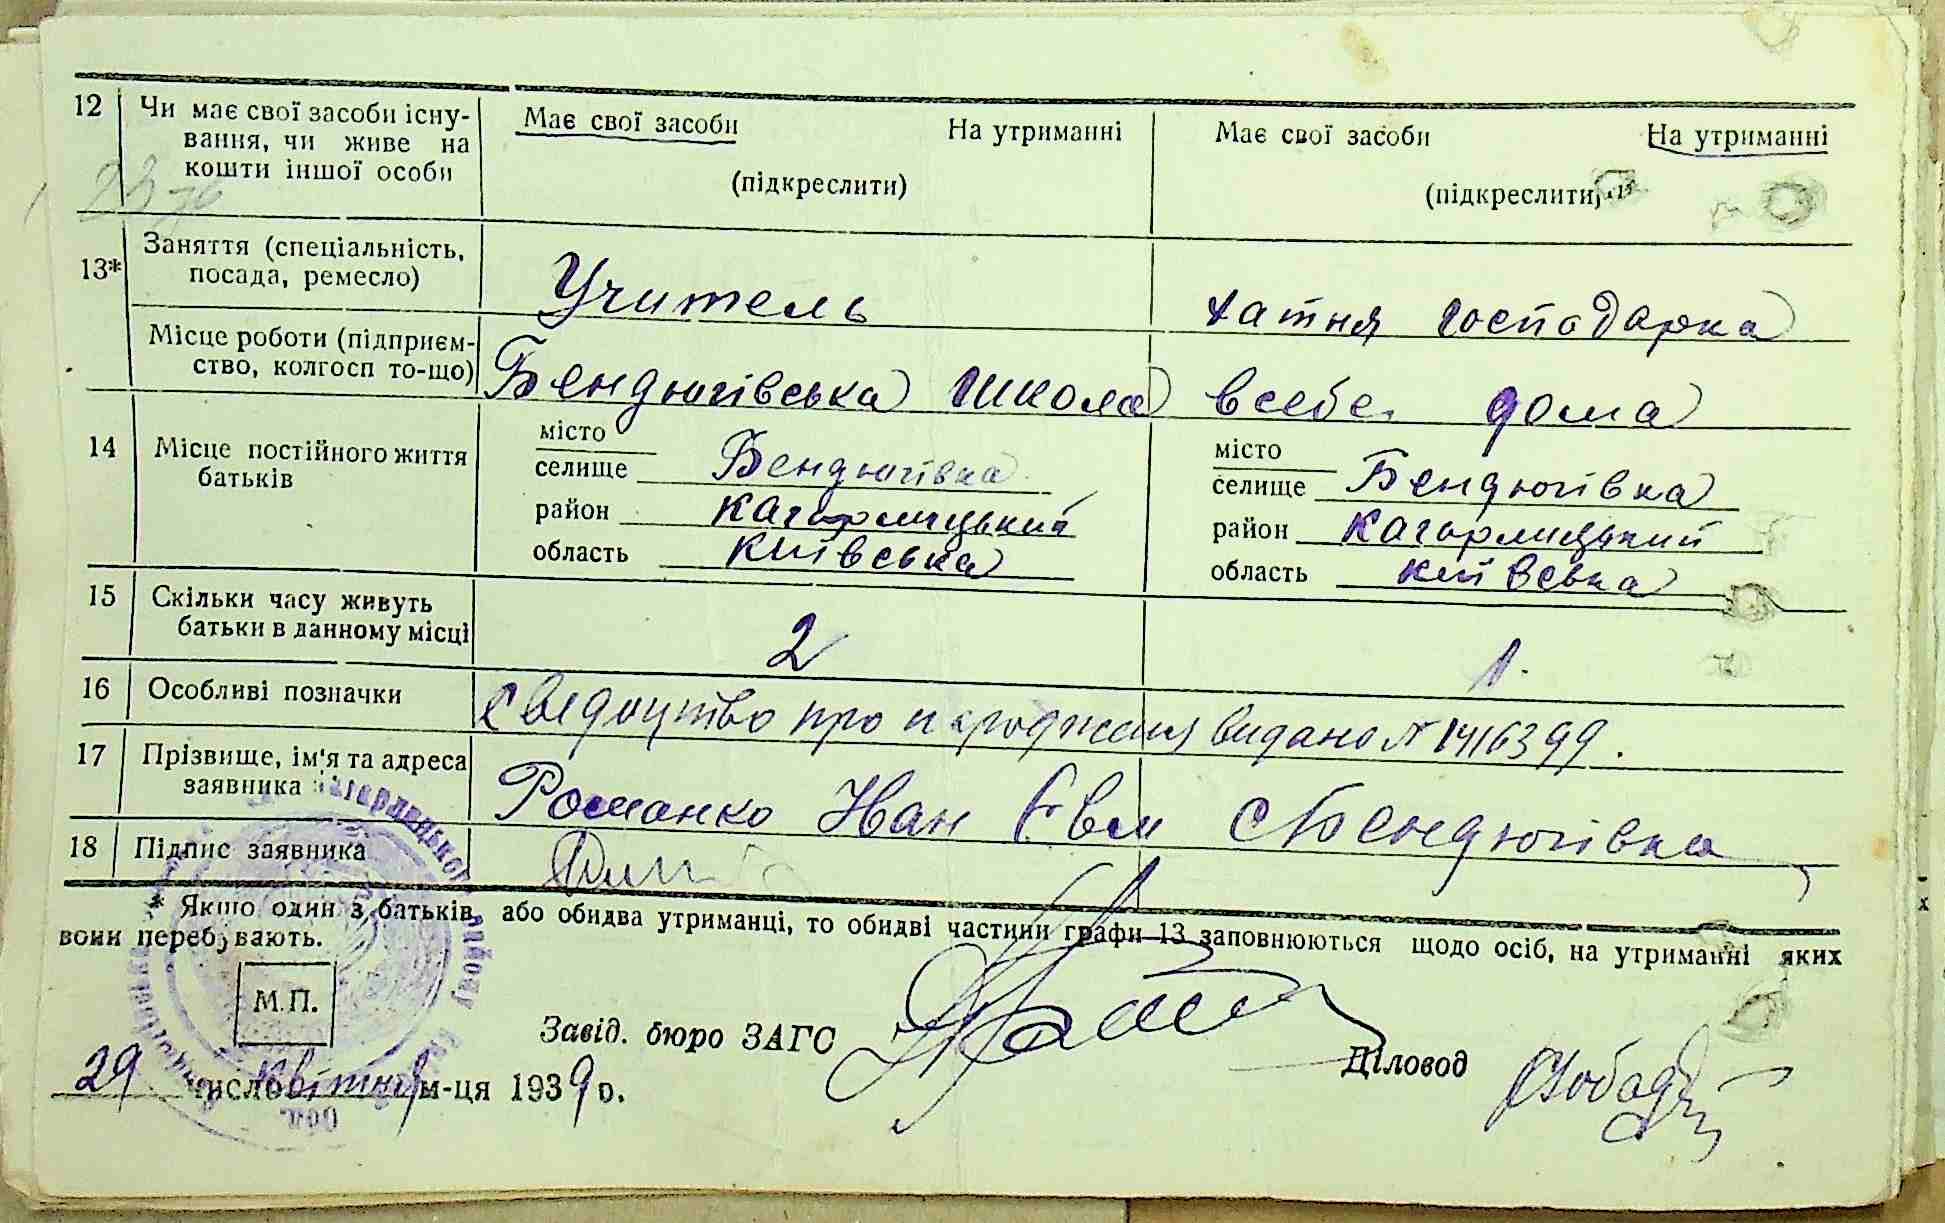 12 Чи має свої засоби існу- Має свої засоби На утриманні Має свої засоби На утриманні
вання, чи живе на
кошти іншої особи (підкреслити) (підкреслити)
13* Заняття (спеціальність, посада, ремесло) Учитель хатня господарка
Місце роботи (підприєм-
ство, колгосп то-що) Бендюгівська школа всебе дома
14 Місце постійного життя
батьків
місто
селище Бендюгівка
район Кагарлицький
область Київська
місто
селище Бендюгівка
район Кагарлицький
область Київська
15 Скільки часу живуть
батьки в данному місці 2 1.
16 Особливі позначки сведоцтво про народження видано № 1416399.
17 Прізвище, ім'я та адреса
заявника Романко Іван Євм с Бендюгівка
18 Підпис заявника
* Якщо один з батьків, або обидва утриманці, то обидві частини графи 13 заповнюються щодо осіб, на утриманні яких
вони перебувають.
М.П.
Завід. бюро ЗАГС
Діловод
29 число квітня м-ця 1939 р.